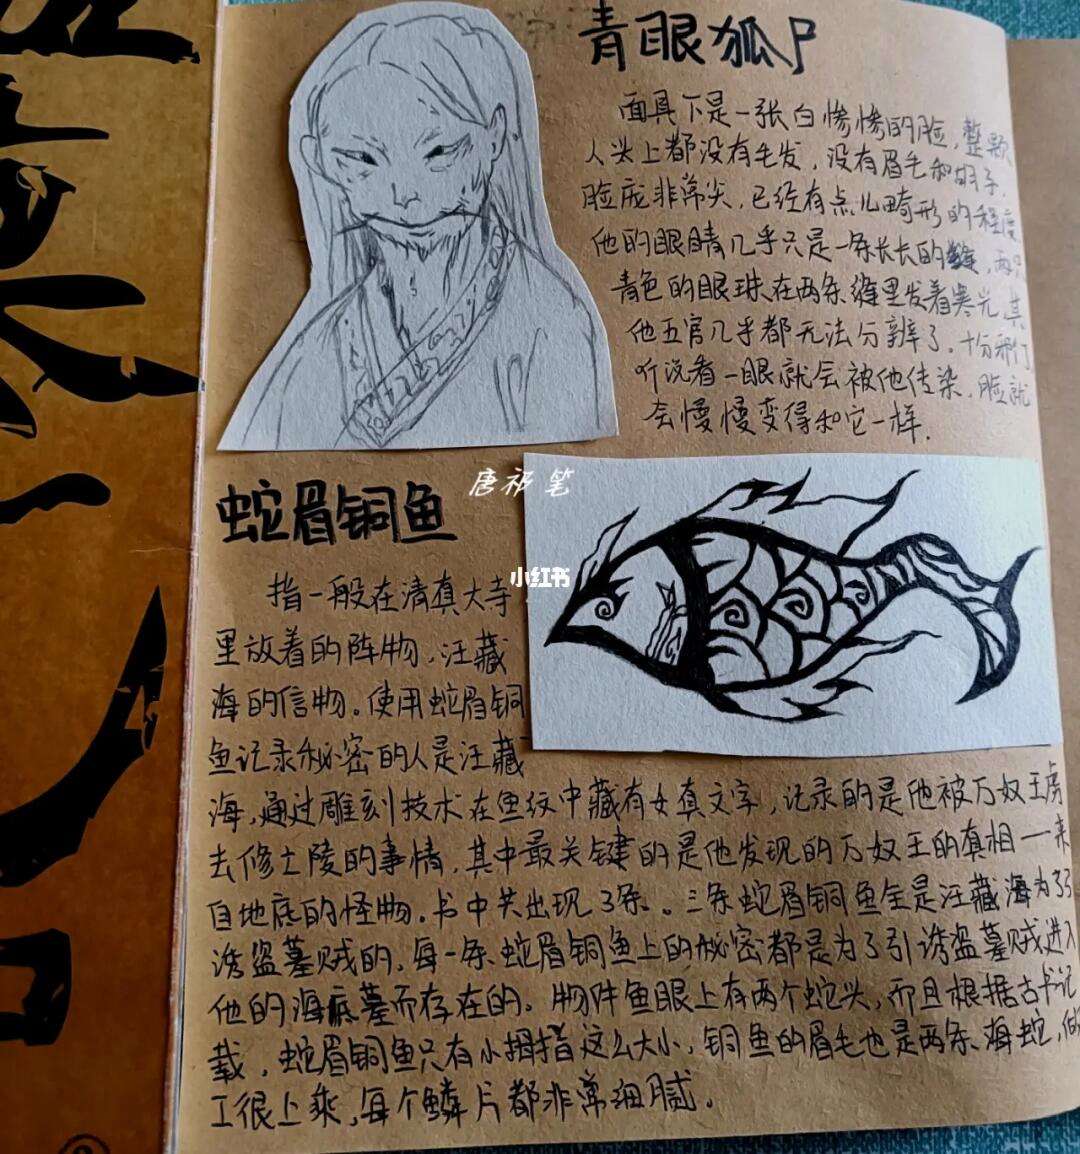 青眼狐尸
面具下是一张白惨惨的脸,整颗
人头上都没有毛发,没有眉毛和胡子,
脸庞非常尖,已经有点儿畸形的程度
他的眼睛几乎只是一条长长的缝,两只
青色的眼珠在两条缝里发着寒光,其
他五官几乎都无法分辨了。十分邪门
听说看一眼就会被他传染,脸就
会慢慢变得和它一样.
唐祁笔
小红书
蛇眉铜鱼
指一般在清真大寺
里放着的阵物,汪藏
海的信物。使用蛇眉铜
鱼记录秘密的人是汪藏
海,通过雕刻技术在鱼纹中藏有女真文字,记录的是他被万奴王虏
去修土陵的事情,其中最关键的是他发现的万奴王的真相一来
自地底的怪物.书中共出现3条。三条蛇眉铜鱼全是汪藏海为了引
诱盗墓贼的,每一条蛇眉铜鱼上的秘密都是为了引诱盗墓贼进入
他的海底墓而存在的。物件鱼眼上有两个蛇头,而且根据古书记
载,蛇眉铜鱼只有小拇指这么大小,铜鱼的眉毛也是两条海蛇,做
工很上乘,每个鳞片都非常细腻。